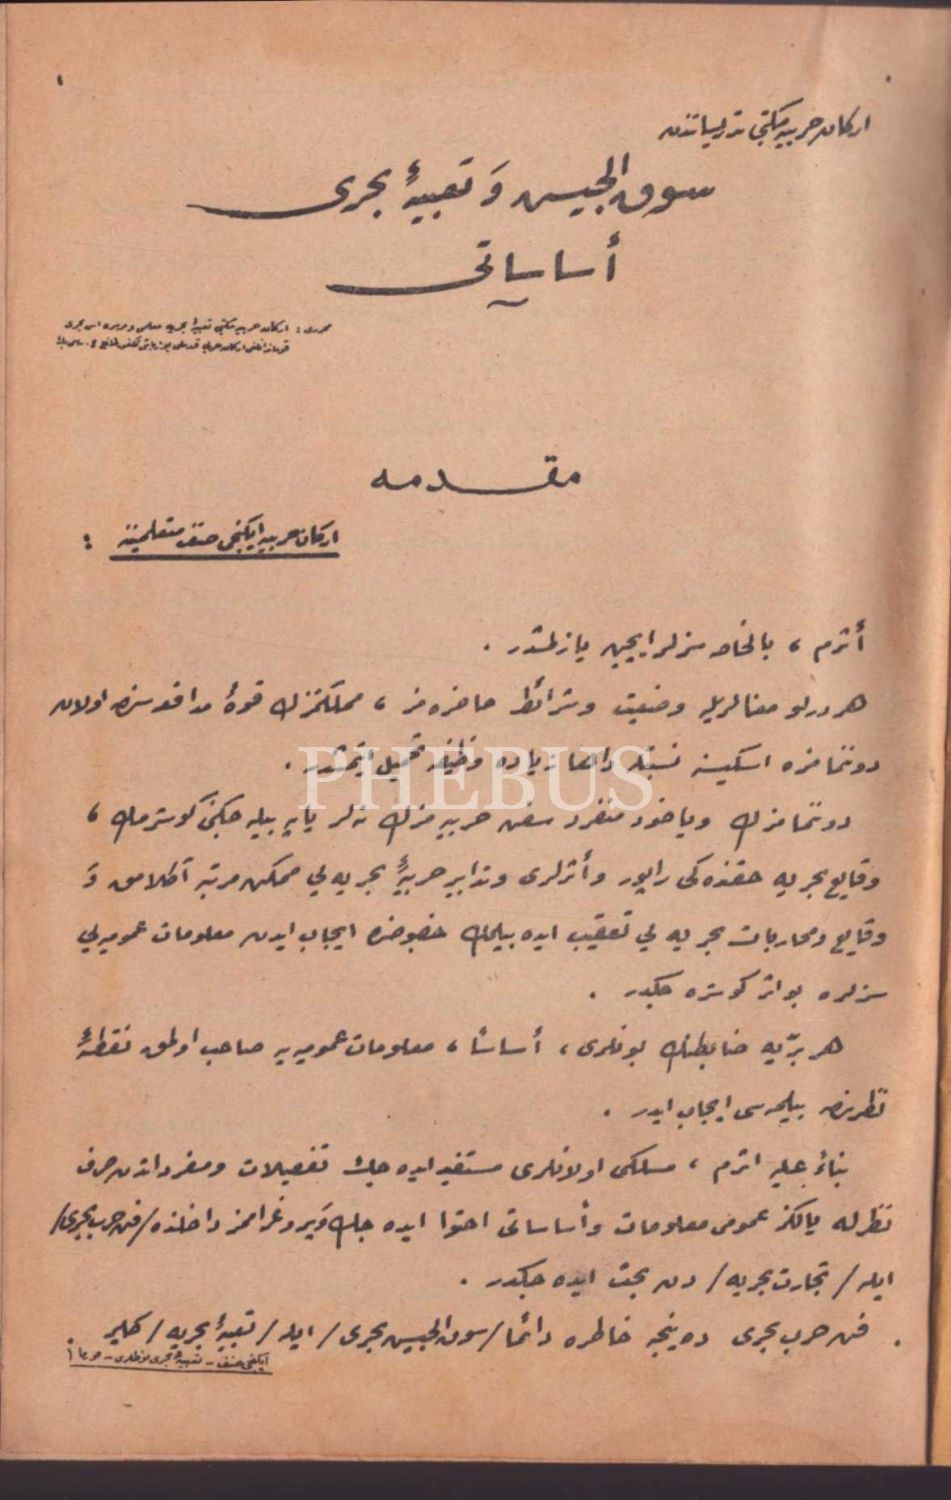 ١
اركان حربيه مكتبى تدريساتندن
سوق الجيش وَ تعبيهٔ بحرى
أساساتى
محررى : اركان حربيه مكتبى تعبيهٔ بحريه معلمى و
مقدمه
اركان حربيه ايكنجى صنف متعلمينه :
أثرم ، بالخاصه سزلر ايچين يازلمشدر .
هر درلو معنالريله وضعيت وشرائط حاضره مز ، مملكتمزك قوهٔ مدافعه سنه اولان
دوننمامزه اسكيسنه نسبتله داها زياده وظيفه تحميل ايتمشدر .
دوننمامزك وياخود منفرد سفن حربيه مزك نه لر ياپه بيله جكنى كوسترمك ،
وقايع بحريه حقنده كى راپور وأثرلرى وتدابير حربيهٔ بحريه يى ممكن مرتبه آڭلامق وَ
وقايع ومحاربات بحريه يى تعقيب ايده بيلمك خصوصنده ايجاب ايدن معلومات عموميه يى
سزلره بو اثر كوستره جكدر .
هر برّيه ضابطنك بونلرى ، أساساً ، معلومات عموميه يه صاحب اولمق نقطهٔ
نظرندن بيلمه سى ايجاب ايدر .
بناءً عليه اثرم ، مسلكى اولانلرى مستفيد ايده جك تفصيلات ومفرداتدن صرف
نظرله يالكز عمومى معلومات وأساساتى احتوا ايده جك وَ پروغراممز داخلنده /فن حرب بحرى/
ايله / تجارت بحريه / دن بحث ايده جكدر .
فن حرب بحرى ديننجه خاطره دائما /سوق الجيش بحرى/ ايله / تعبيهٔ بحريه / كلير .
ايكنجى صنف - تعبيهٔ بحرى نوطلرى - فورما ١
PHEBUS